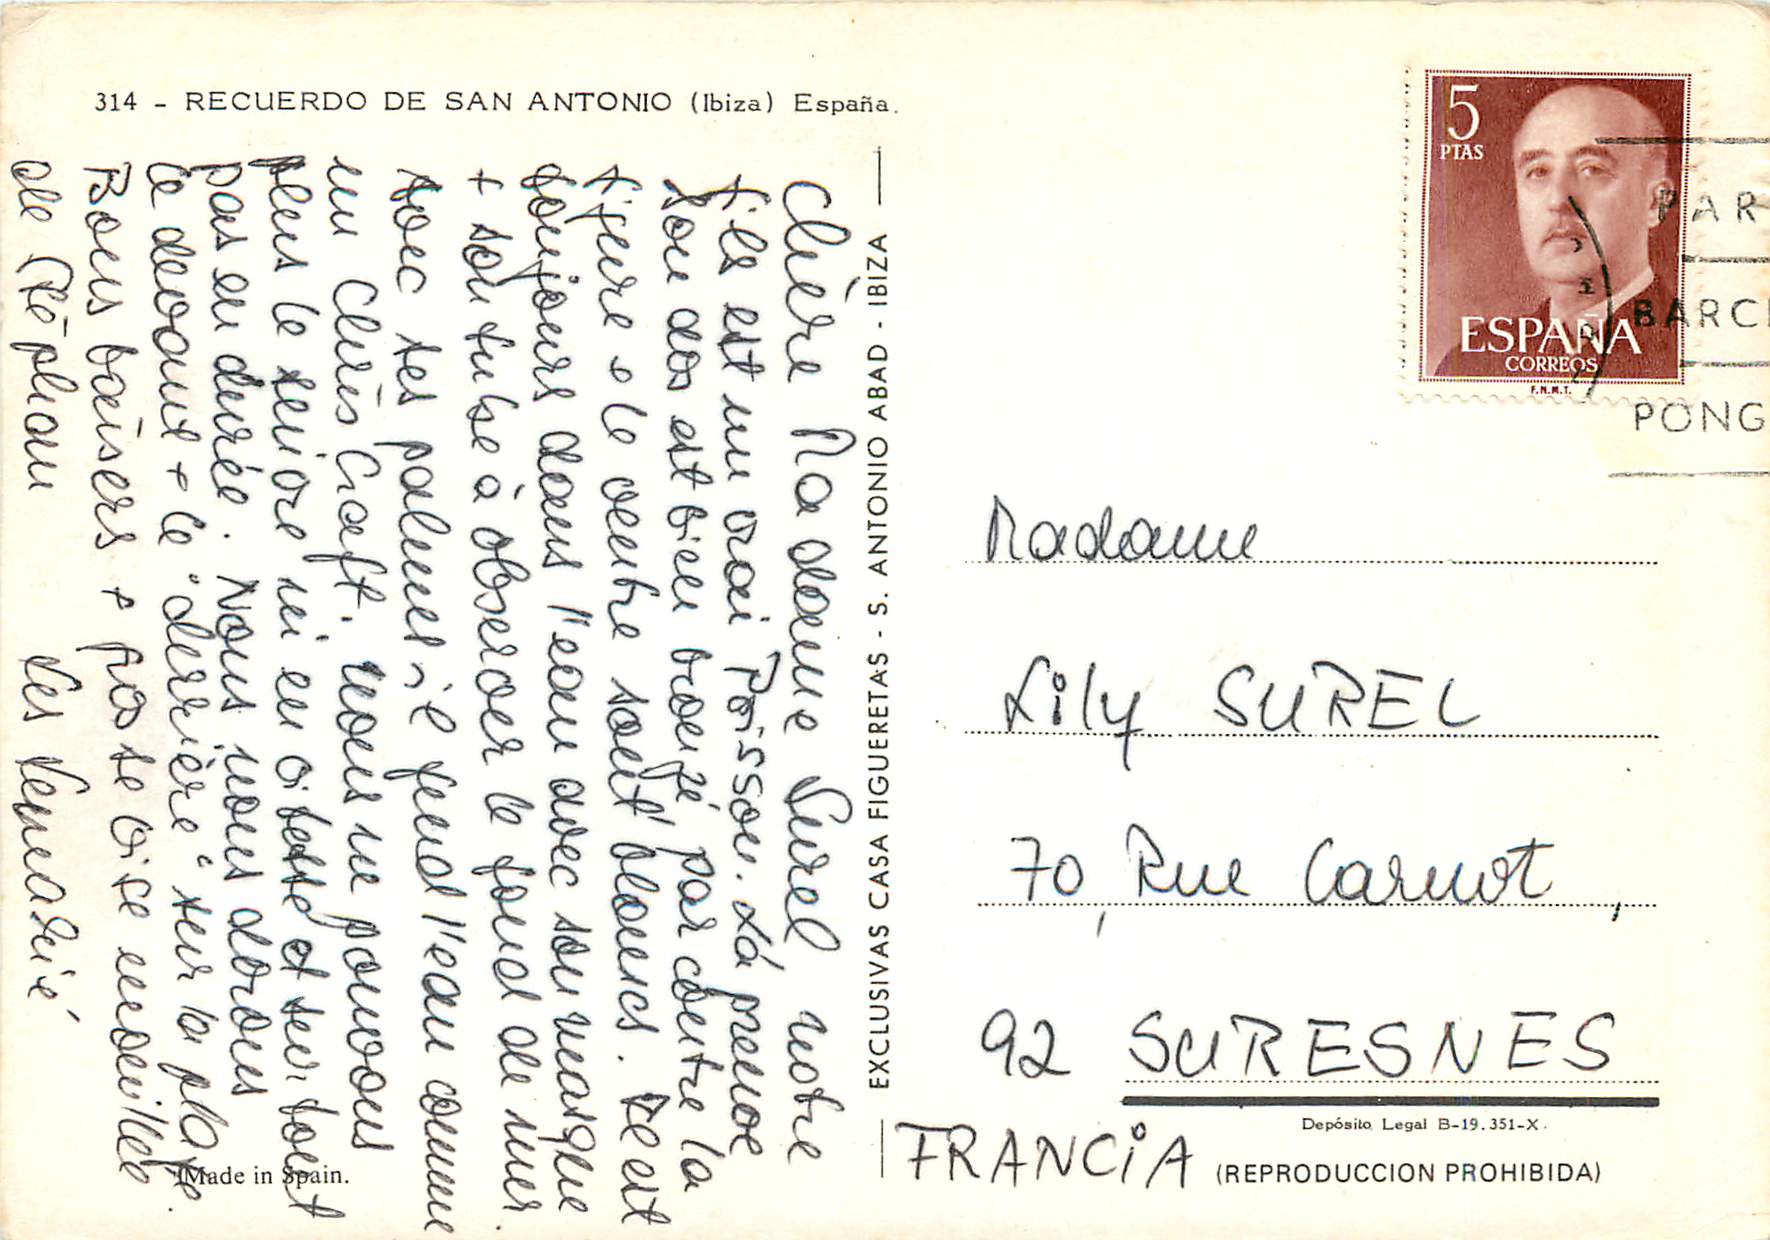 314 - RECUERDO DE SAN ANTONIO (Ibiza) España.
Chère Madame Surel, notre
fils est un vrai Poisson. La preuve
son dos est bien bronzé par contre la
figure + le ventre sont blancs. Il est
toujours dans l'eau avec son masque
+ son tube à observer le fond de mer.
Avec ses palmes il fend l'eau comme
un Chris Craft. Nous ne pouvons
plus le suivre ni en vitesse et surtout
pas en durée. Nous nous dorons
le devant + le "derrière" sur la plage.
Bons baisers + grosse bise mouillée
de Stéphan
Les
EXCLUSIVAS CASA FIGUERETAS - S. ANTONIO ABAD - IBIZA
5
PTAS
ESPAÑA
CORREOS
F.N.M.T.
PAR
BARCE
PONG
Madame
Lily SUREL
70, Rue Carnot,
92 SURESNES
FRANCiA
Depósito Legal B-19.351-X.
(REPRODUCCION PROHIBIDA)
Made in Spain.